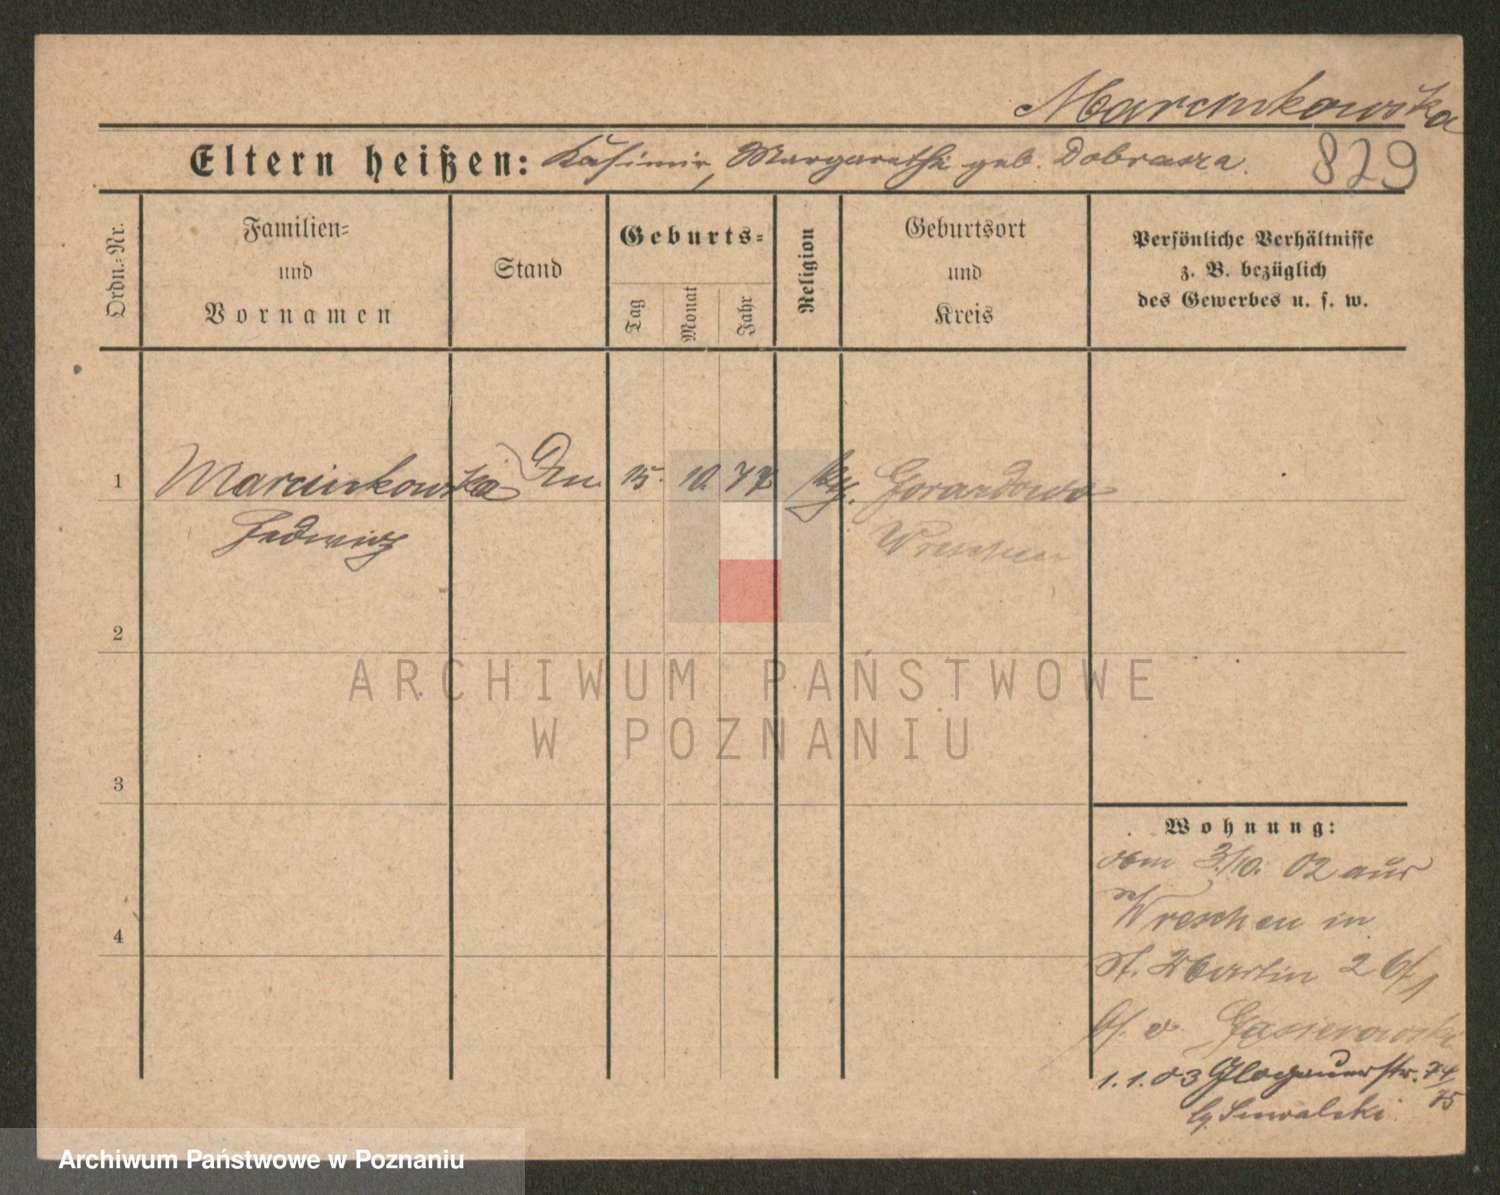 Marcinkowska
Eltern heißen: Kasimir, Margarethe geb. Dobrasza.
829
Ordn.-Nr.
Familien-
und
Vornamen
Stand
Geburts-
Tag
Monat
Jahr
Religion
Geburtsort
und
Kreis
Persönliche Verhältnisse
z. B. bezüglich
des Gewerbes u. s. w.
1
Marcinkowska
Hedwig
15. 10. 77
Gorazdowo
Wreschen
2
3
4
Wohnung:
vom 3./10. 02 aus
Wreschen in
St. Martin 26/1
b/. v.
1.1.03 Glogauerstr. 74/75
b/ Suwalski.
ARCHIWUM PAŃSTWOWE
W POZNANIU
Archiwum Państwowe w Poznaniu